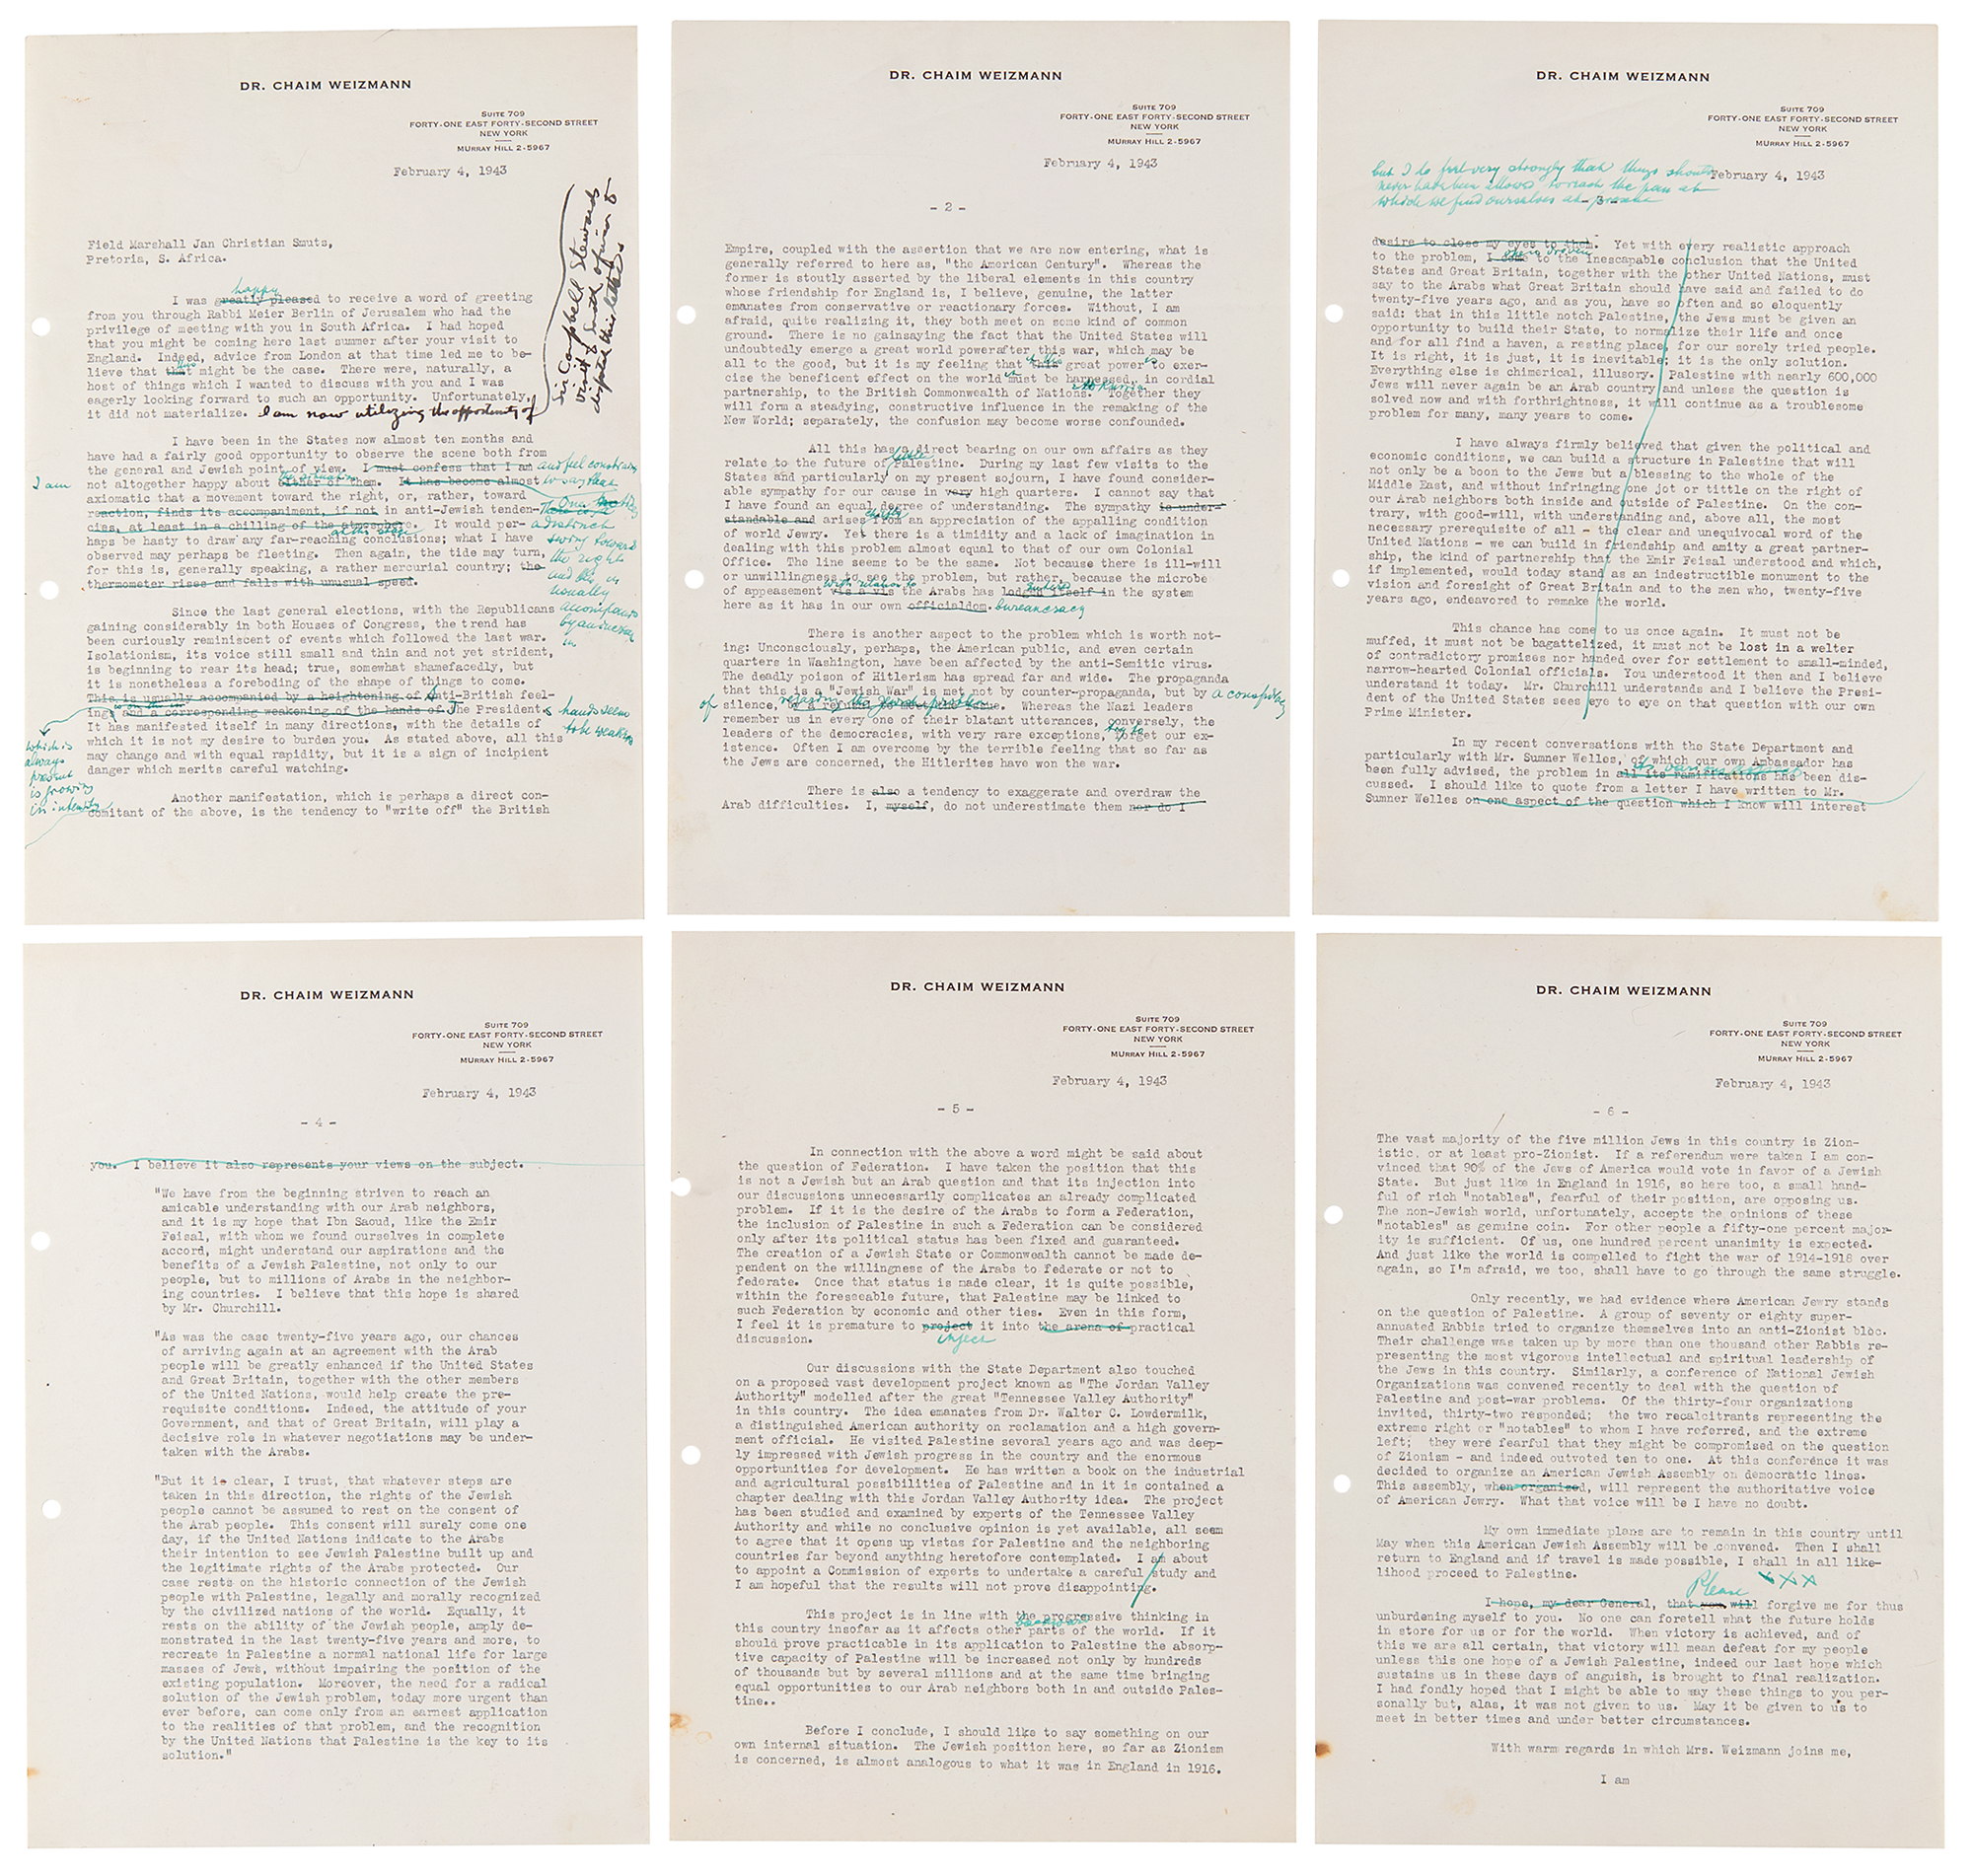 DR. CHAIM WEIZMANN
SUITE 709
FORTY-ONE EAST FORTY-SECOND STREET
NEW YORK
MURRAY HILL 2-5967
February 4, 1943
Field Marshall Jan Christian Smuts,
Pretoria, S. Africa.
happy
I was greatly pleased to receive a word of greeting
from you through Rabbi Meier Berlin of Jerusalem who had the
privilege of meeting with you in South Africa. I had hoped
that you might be coming here last summer after your visit to
England. Indeed, advice from London at that time led me to be-
lieve that this might be the case. There were, naturally, a
host of things which I wanted to discuss with you and I was
eagerly looking forward to such an opportunity. Unfortunately,
it did not materialize. I am now utilizing the opportunity of
Sir Campbell Stewards
visit to South Africa to
dispatch this letter.
I have been in the States now almost ten months and
have had a fairly good opportunity to observe the scene both from
the general and Jewish point of view. I must confess that I am and feel constrained
I am not altogether happy about either of them. It has become almost to say that
the situation
axiomatic that a movement toward the right, or, rather, toward
reaction, finds its accompaniment, if not in anti-Jewish tenden-
cies, at least in a chilling of the atmosphere. It would per-
haps be hasty to draw any far-reaching conclusions; what I have
observed may perhaps be fleeting. Then again, the tide may turn,
for this is, generally speaking, a rather mercurial country; the
thermometer rises and falls with unusual speed.
a distinct
swing toward
the right
and this is
usually
accompanied
by an increase
in
Since the last general elections, with the Republicans
gaining considerably in both Houses of Congress, the trend has
been curiously reminiscent of events which followed the last war.
Isolationism, its voice still small and thin and not yet strident,
is beginning to rear its head; true, somewhat shamefacedly, but
it is nonetheless a foreboding of the shape of things to come.
This is usually accompanied by a heightening of Anti-British feel-
ings and a corresponding weakening of the hands of The President's hands seem
to be weaken
It has manifested itself in many directions, with the details of
which it is not my desire to burden you. As stated above, all this
may change and with equal rapidity, but it is a sign of incipient
danger which merits careful watching.
which is
always
present
is growing
in intensity
Another manifestation, which is perhaps a direct con-
comitant of the above, is the tendency to "write off" the British
DR. CHAIM WEIZMANN
SUITE 709
FORTY-ONE EAST FORTY-SECOND STREET
NEW YORK
MURRAY HILL 2-5967
February 4, 1943
- 2 -
Empire, coupled with the assertion that we are now entering, what is
generally referred to here as, "the American Century". Whereas the
former is stoutly asserted by the liberal elements in this country
whose friendship for England is, I believe, genuine, the latter
emanates from conservative or reactionary forces. Without, I am
afraid, quite realizing it, they both meet on some kind of common
ground. There is no gainsaying the fact that the United States will
undoubtedly emerge a great world powerafter this war, which may be
all to the good, but it is my feeling that this great power to exer-
cise the beneficent effect on the world must be harnessed, in cordial
partnership, to the British Commonwealth of Nations. Together they
will form a steadying, constructive influence in the remaking of the
New World; separately, the confusion may become worse confounded.
All this has a direct bearing on our own affairs as they
relate to the future of Palestine. During my last few visits to the
States and particularly on my present sojourn, I have found consider-
able sympathy for our cause in very high quarters. I cannot say that
I have found an equal degree of understanding. The sympathy is under-
standable and arises chiefly from an appreciation of the appalling condition
of world Jewry. Yet there is a timidity and a lack of imagination in
dealing with this problem almost equal to that of our own Colonial
Office. The line seems to be the same. Not because there is ill-will
or unwillingness to see the problem, but rather, because the microbe
with relation to
of appeasement vis a vis the Arabs has lodged itself in the system
here as it has in our own officialdom. bureaucracy
There is another aspect to the problem which is worth not-
ing: Unconsciously, perhaps, the American public, and even certain
quarters in Washington, have been affected by the anti-Semitic virus.
The deadly poison of Hitlerism has spread far and wide. The propaganda
that this is a "Jewish War" is met not by counter-propaganda, but by a conspiracy
regarding the Jewish problem
of silence, or a refusal to meet the issue. Whereas the Nazi leaders
remember us in every one of their blatant utterances, conversely, the
leaders of the democracies, with very rare exceptions, forget our ex-
istence. Often I am overcome by the terrible feeling that so far as
the Jews are concerned, the Hitlerites have won the war.
There is also a tendency to exaggerate and overdraw the
Arab difficulties. I, myself, do not underestimate them nor do I
DR. CHAIM WEIZMANN
SUITE 709
FORTY-ONE EAST FORTY-SECOND STREET
NEW YORK
MURRAY HILL 2-5967
February 4, 1943
but I do feel very strongly that things should
never have been allowed to reach the pass at
which we find ourselves at present
- 3 -
desire to close my eyes to them. Yet with every realistic approach
to the problem, I come to the inescapable conclusion that the United
States and Great Britain, together with the other United Nations, must
say to the Arabs what Great Britain should have said and failed to do
twenty-five years ago, and as you, have so often and so eloquently
said: that in this little notch Palestine, the Jews must be given an
opportunity to build their State, to normalize their life and once
and for all find a haven, a resting place, for our sorely tried people.
It is right, it is just, it is inevitable; it is the only solution.
Everything else is chimerical, illusory. Palestine with nearly 600,000
Jews will never again be an Arab country and unless the question is
solved now and with forthrightness, it will continue as a troublesome
problem for many, many years to come.
I have always firmly believed that given the political and
economic conditions, we can build a structure in Palestine that will
not only be a boon to the Jews but a blessing to the whole of the
Middle East, and without infringing one jot or tittle on the right of
our Arab neighbors both inside and outside of Palestine. On the con-
trary, with good-will, with understanding and, above all, the most
necessary prerequisite of all - the clear and unequivocal word of the
United Nations - we can build in friendship and amity a great partner-
ship, the kind of partnership that the Emir Feisal understood and which,
if implemented, would today stand as an indestructible monument to the
vision and foresight of Great Britain and to the men who, twenty-five
years ago, endeavored to remake the world.
This chance has come to us once again. It must not be
muffed, it must not be bagattelized, it must not be lost in a welter
of contradictory promises nor handed over for settlement to small-minded,
narrow-hearted Colonial officials. You understood it then and I believe
understand it today. Mr. Churchill understands and I believe the Presi-
dent of the United States sees eye to eye on that question with our own
Prime Minister.
In my recent conversations with the State Department and
particularly with Mr. Sumner Welles, of which our own Ambassador has
been fully advised, the problem in all its ramifications has been dis-
cussed. I should like to quote from a letter I have written to Mr.
Sumner Welles on one aspect of the question which I know will interest
DR. CHAIM WEIZMANN
SUITE 709
FORTY-ONE EAST FORTY-SECOND STREET
NEW YORK
MURRAY HILL 2-5967
February 4, 1943
- 4 -
you. I believe it also represents your views on the subject.
"We have from the beginning striven to reach an
amicable understanding with our Arab neighbors,
and it is my hope that Ibn Saoud, like the Emir
Feisal, with whom we found ourselves in complete
accord, might understand our aspirations and the
benefits of a Jewish Palestine, not only to our
people, but to millions of Arabs in the neighbor-
ing countries. I believe that this hope is shared
by Mr. Churchill.
"As was the case twenty-five years ago, our chances
of arriving again at an agreement with the Arab
people will be greatly enhanced if the United States
and Great Britain, together with the other members
of the United Nations, would help create the pre-
requisite conditions. Indeed, the attitude of your
Government, and that of Great Britain, will play a
decisive role in whatever negotiations may be under-
taken with the Arabs.
"But it is clear, I trust, that whatever steps are
taken in this direction, the rights of the Jewish
people cannot be assumed to rest on the consent of
the Arab people. This consent will surely come one
day, if the United Nations indicate to the Arabs
their intention to see Jewish Palestine built up and
the legitimate rights of the Arabs protected. Our
case rests on the historic connection of the Jewish
people with Palestine, legally and morally recognized
by the civilized nations of the world. Equally, it
rests on the ability of the Jewish people, amply de-
monstrated in the last twenty-five years and more, to
recreate in Palestine a normal national life for large
masses of Jews, without impairing the position of the
existing population. Moreover, the need for a radical
solution of the Jewish problem, today more urgent than
ever before, can come only from an earnest application
to the realities of that problem, and the recognition
by the United Nations that Palestine is the key to its
solution."
DR. CHAIM WEIZMANN
SUITE 709
FORTY-ONE EAST FORTY-SECOND STREET
NEW YORK
MURRAY HILL 2-5967
February 4, 1943
- 5 -
In connection with the above a word might be said about
the question of Federation. I have taken the position that this
is not a Jewish but an Arab question and that its injection into
our discussions unnecessarily complicates an already complicated
problem. If it is the desire of the Arabs to form a Federation,
the inclusion of Palestine in such a Federation can be considered
only after its political status has been fixed and guaranteed.
The creation of a Jewish State or Commonwealth cannot be made de-
pendent on the willingness of the Arabs to federate or not to
federate. Once that status is made clear, it is quite possible,
within the foreseeable future, that Palestine may be linked to
such Federation by economic and other ties. Even in this form,
I feel it is premature to project it into the arena of practical
inject
discussion.
Our discussions with the State Department also touched
on a proposed vast development project known as "The Jordan Valley
Authority" modelled after the great "Tennessee Valley Authority"
in this country. The idea emanates from Dr. Walter C. Lowdermilk,
a distinguished American authority on reclamation and a high govern-
ment official. He visited Palestine several years ago and was deep-
ly impressed with Jewish progress in the country and the enormous
opportunities for development. He has written a book on the industrial
and agricultural possibilities of Palestine and in it is contained a
chapter dealing with this Jordan Valley Authority idea. The project
has been studied and examined by experts of the Tennessee Valley
Authority and while no conclusive opinion is yet available, all seem
to agree that it opens up vistas for Palestine and the neighboring
countries far beyond anything heretofore contemplated. I am about
to appoint a Commission of experts to undertake a careful study and
I am hopeful that the results will not prove disappointing.
This project is in line with the progressive thinking in
backward
this country insofar as it affects other parts of the world. If it
should prove practicable in its application to Palestine the absorp-
tive capacity of Palestine will be increased not only by hundreds
of thousands but by several millions and at the same time bringing
equal opportunities to our Arab neighbors both in and outside Pales-
tine..
Before I conclude, I should like to say something on our
own internal situation. The Jewish position here, so far as Zionism
is concerned, is almost analogous to what it was in England in 1916.
DR. CHAIM WEIZMANN
SUITE 709
FORTY-ONE EAST FORTY-SECOND STREET
NEW YORK
MURRAY HILL 2-5967
February 4, 1943
- 6 -
The vast majority of the five million Jews in this country is Zion-
istic, or at least pro-Zionist. If a referendum were taken I am con-
vinced that 90% of the Jews of America would vote in favor of a Jewish
State. But just like in England in 1916, so here too, a small hand-
ful of rich "notables", fearful of their position, are opposing us.
The non-Jewish world, unfortunately, accepts the opinions of these
"notables" as genuine coin. For other people a fifty-one percent major-
ity is sufficient. Of us, one hundred percent unanimity is expected.
And just like the world is compelled to fight the war of 1914-1918 over
again, so I'm afraid, we too, shall have to go through the same struggle.
Only recently, we had evidence where American Jewry stands
on the question of Palestine. A group of seventy or eighty super-
annuated Rabbis tried to organize themselves into an anti-Zionist bloc.
Their challenge was taken up by more than one thousand other Rabbis re-
presenting the most vigorous intellectual and spiritual leadership of
the Jews in this country. Similarly, a conference of National Jewish
Organizations was convened recently to deal with the question of
Palestine and post-war problems. Of the thirty-four organizations
invited, thirty-two responded; the two recalcitrants representing the
extreme right or "notables" to whom I have referred, and the extreme
left; they were fearful that they might be compromised on the question
of Zionism - and indeed outvoted ten to one. At this conference it was
decided to organize an American Jewish Assembly on democratic lines.
This assembly, when organized, will represent the authoritative voice
of American Jewry. What that voice will be I have no doubt.
My own immediate plans are to remain in this country until
May when this American Jewish Assembly will be convened. Then I shall
return to England and if travel is made possible, I shall in all like-
lihood proceed to Palestine.
Please XXX
I hope, my dear General, that you will forgive me for thus
unburdening myself to you. No one can foretell what the future holds
in store for us or for the world. When victory is achieved, and of
this we are all certain, that victory will mean defeat for my people
unless this one hope of a Jewish Palestine, indeed our last hope which
sustains us in these days of anguish, is brought to final realization.
I had fondly hoped that I might be able to way these things to you per-
sonally but, alas, it was not given to us. May it be given to us to
meet in better times and under better circumstances.
With warm regards in which Mrs. Weizmann joins me,
I am